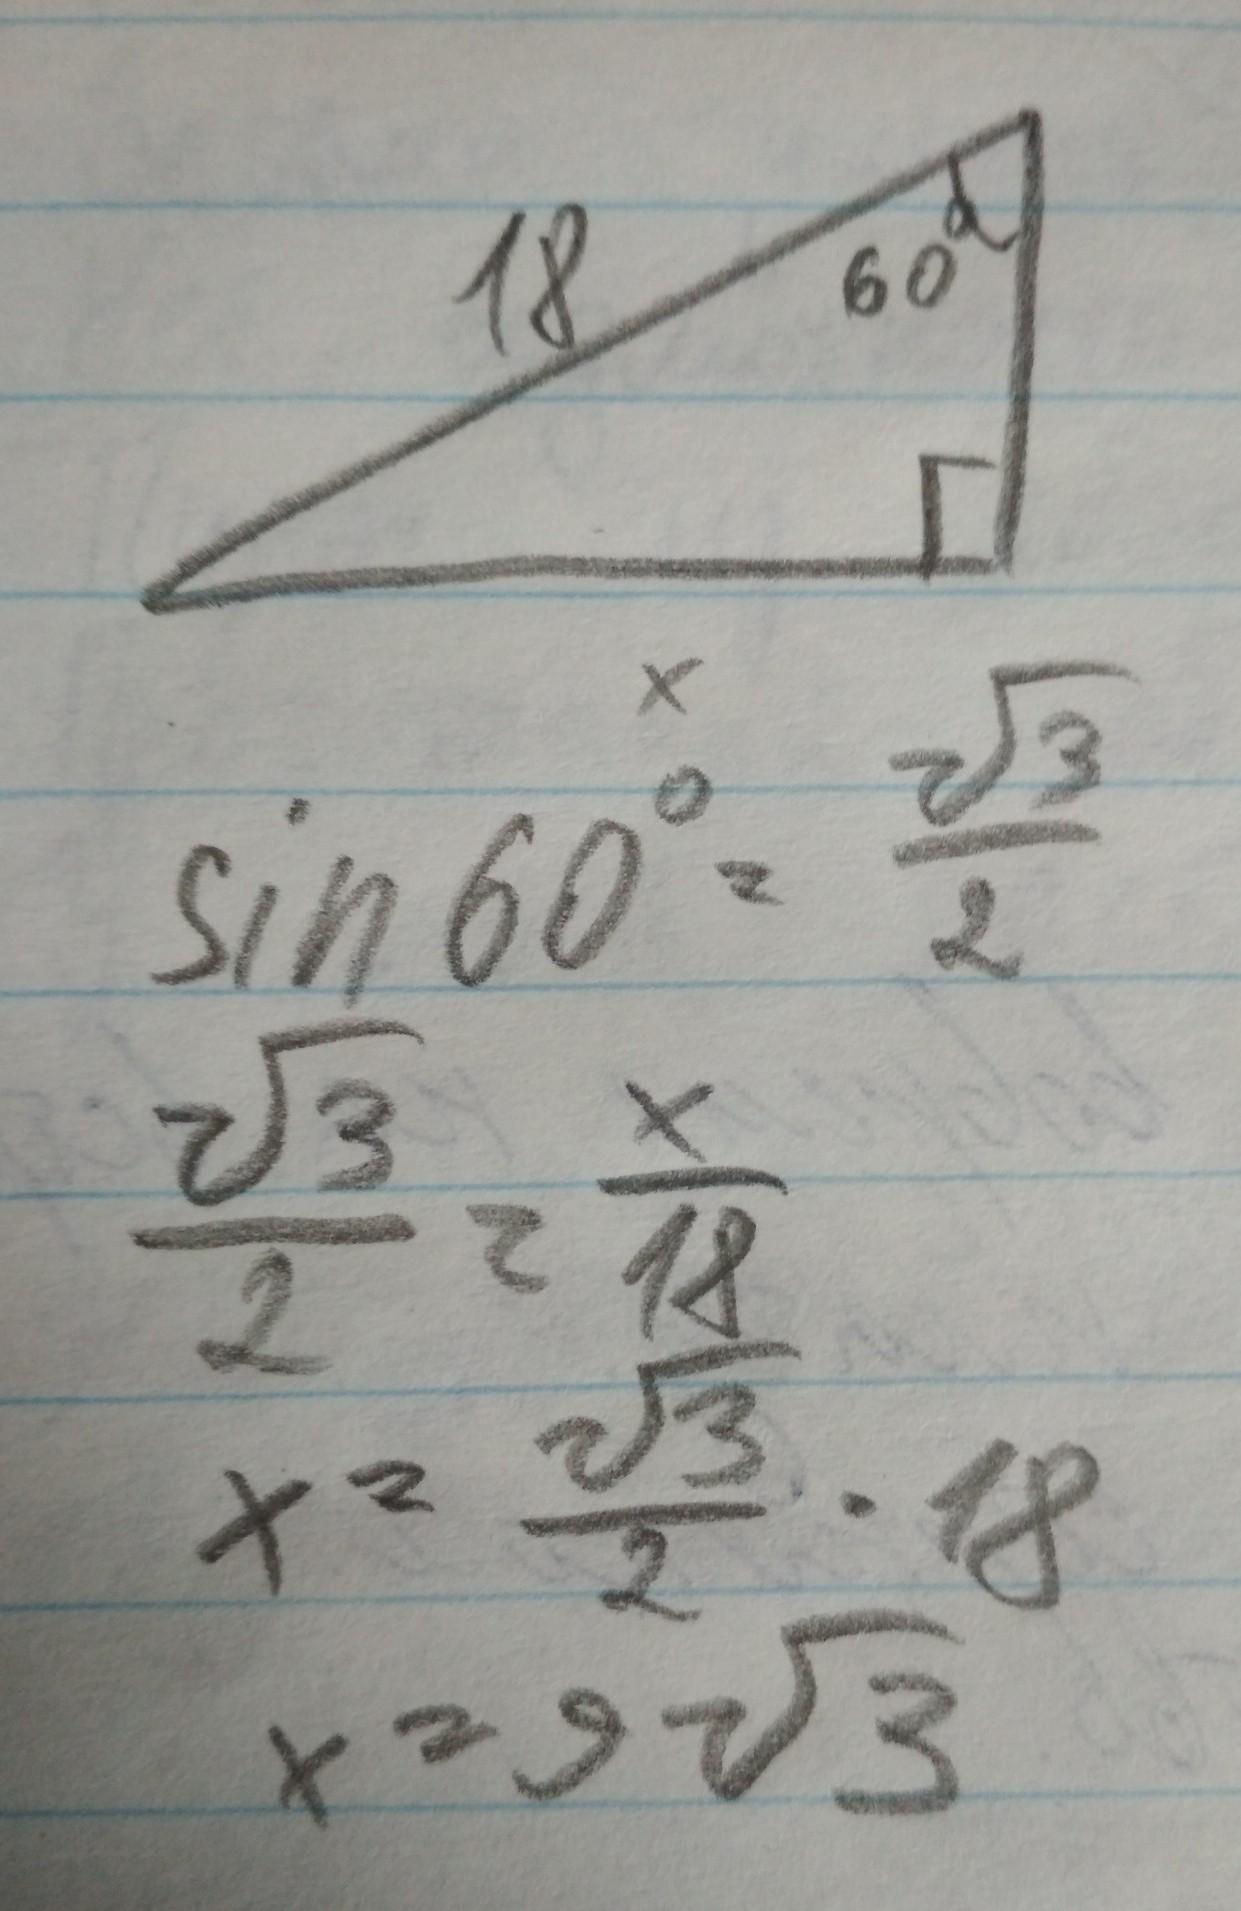 18
60
α
x
sin 60° = √3/2
√3/2 = x/18
x = √3/2 · 18
x = 9√3